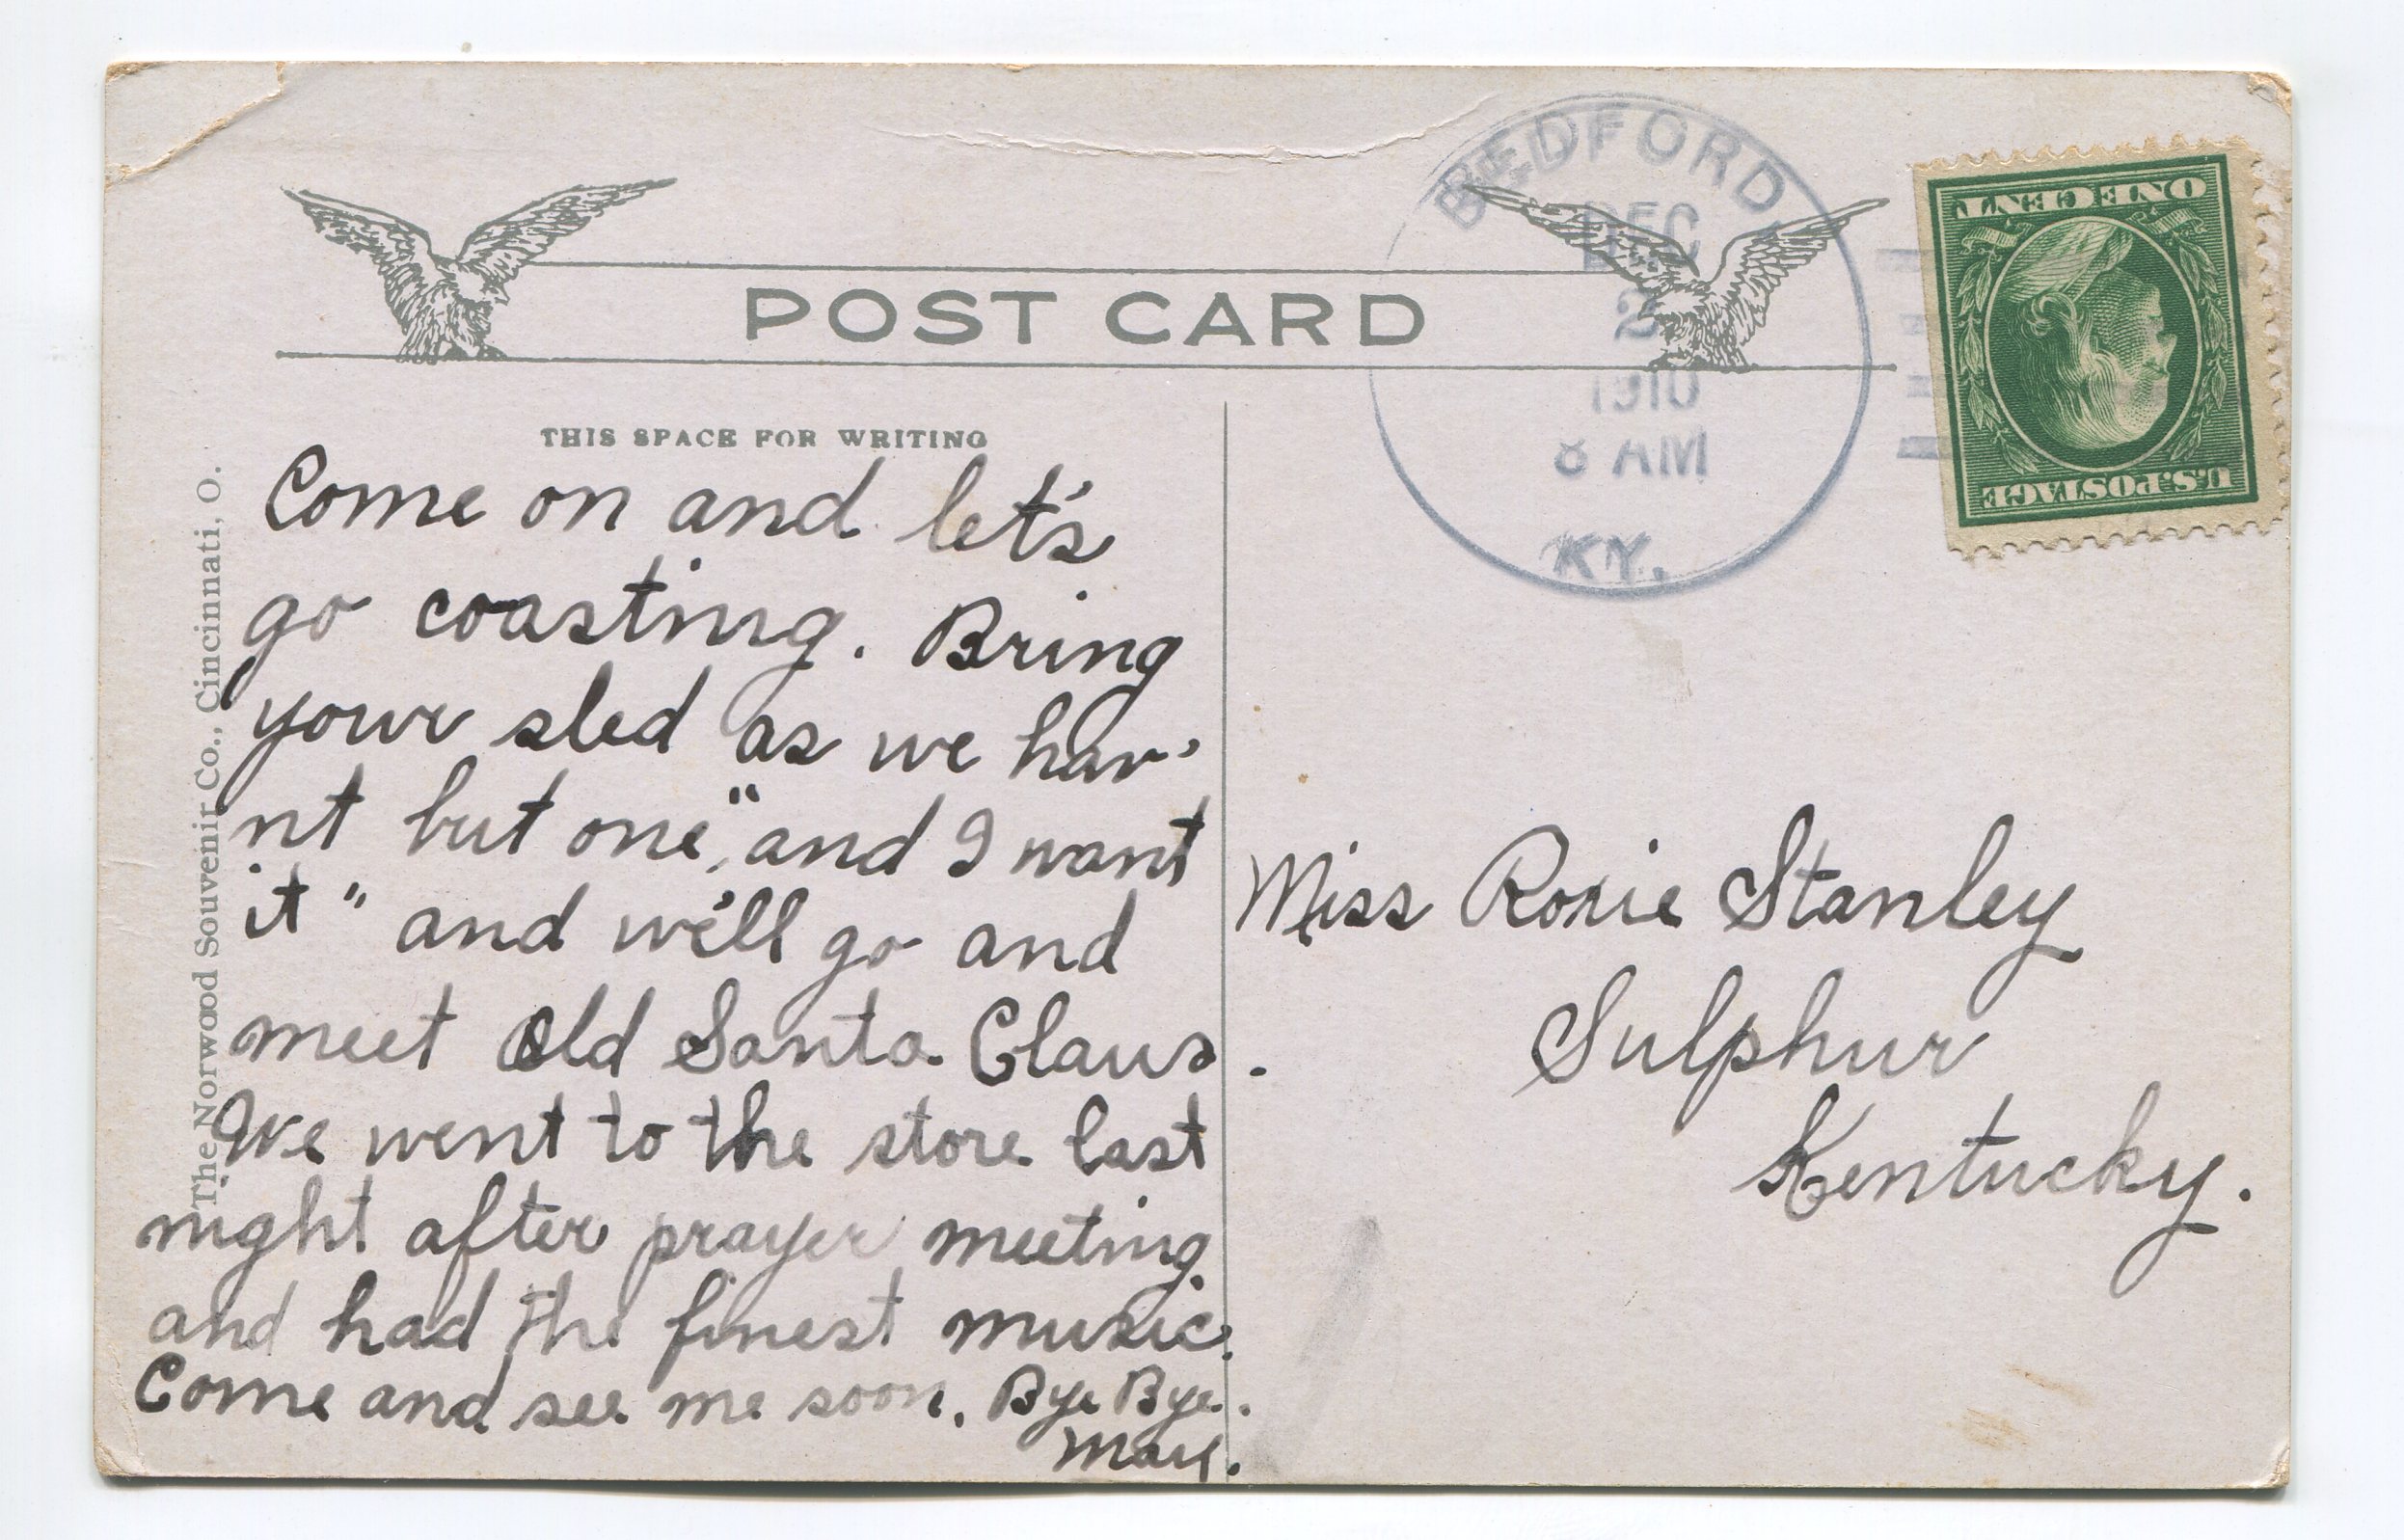 POST CARD
THIS SPACE FOR WRITING
Come on and let's
go coasting. Bring
your sled as we hav'
nt but one, "and I want
it" and we'll go and
meet Old Santa Claus.
We went to the store last
night after prayer meeting
and had the finest music.
Come and see me soon. Bye Bye.
The Norwood Souvenir Co., Cincinnati, O.
BEDFORD,
DEC
2
1910
8 AM
KY.
ONE CENT
U.S. POSTAGE
Miss Roxie Stanley
Sulphur
Kentucky.